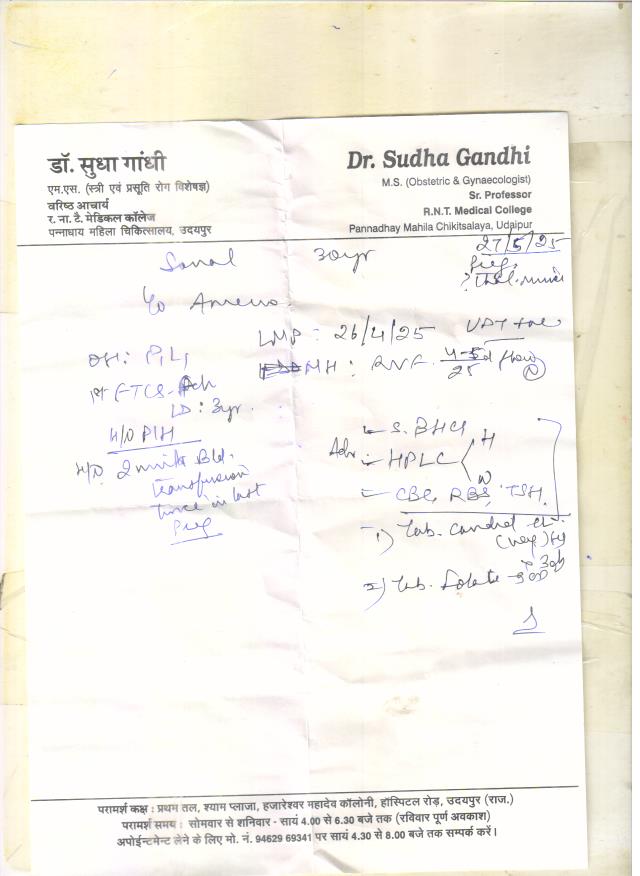 डॉ. सुधा गांधी
एम.एस. (स्त्री एवं प्रसूति रोग विशेषज्ञ)
वरिष्ठ आचार्य
र. ना. टै. मेडिकल कॉलेज
पन्नाधाय महिला चिकित्सालय, उदयपुर
Dr. Sudha Gandhi
M.S. (Obstetric & Gynaecologist)
Sr. Professor
R.N.T. Medical College
Pannadhay Mahila Chikitsalaya, Udaipur
27/5/25
Sonal 30yr
? Thal. minor
LMP : 26/4/25 UPT +ve
OH: P1L1
MH : 4-5d flow
25
1st FTCS
LD : 3yr.
H/O PIH
H/O 2 units Bld.
transfusion
twice in last
Preg
Adv
S. BHCG
HPLC H
W
CBC, RBS, TSH.
1) Tab.
2) Tab. Folate
परामर्श कक्ष : प्रथम तल, श्याम प्लाजा, हजारेश्वर महादेव कॉलोनी, हॉस्पिटल रोड़, उदयपुर (राज.)
परामर्श समय : सोमवार से शनिवार - सायं 4.00 से 6.30 बजे तक (रविवार पूर्ण अवकाश)
अपोईन्टमेन्ट लेने के लिए मो. नं. 94629 69341 पर सायं 4.30 से 8.00 बजे तक सम्पर्क करें।